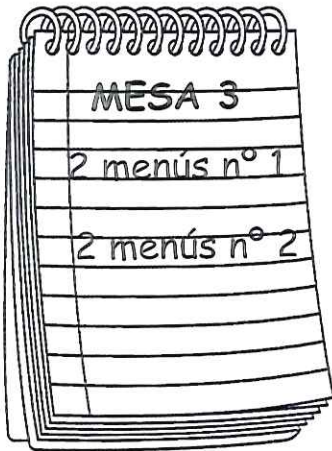 MESA 3
2 menús nº 1
2 menús nº 2